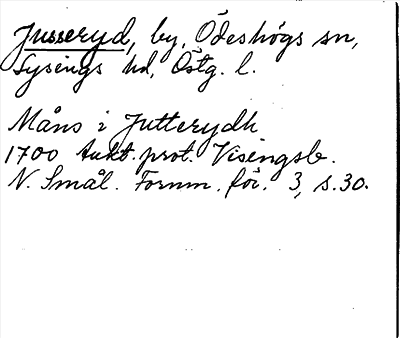 Jusseryd, by, Ödeshögs sn,
Lysings hd, Östg. l.
Måns i Jutterydh
1700 Aukt. prot. Visingsb.
N. Smål. Fornm. för. 3, s. 30.